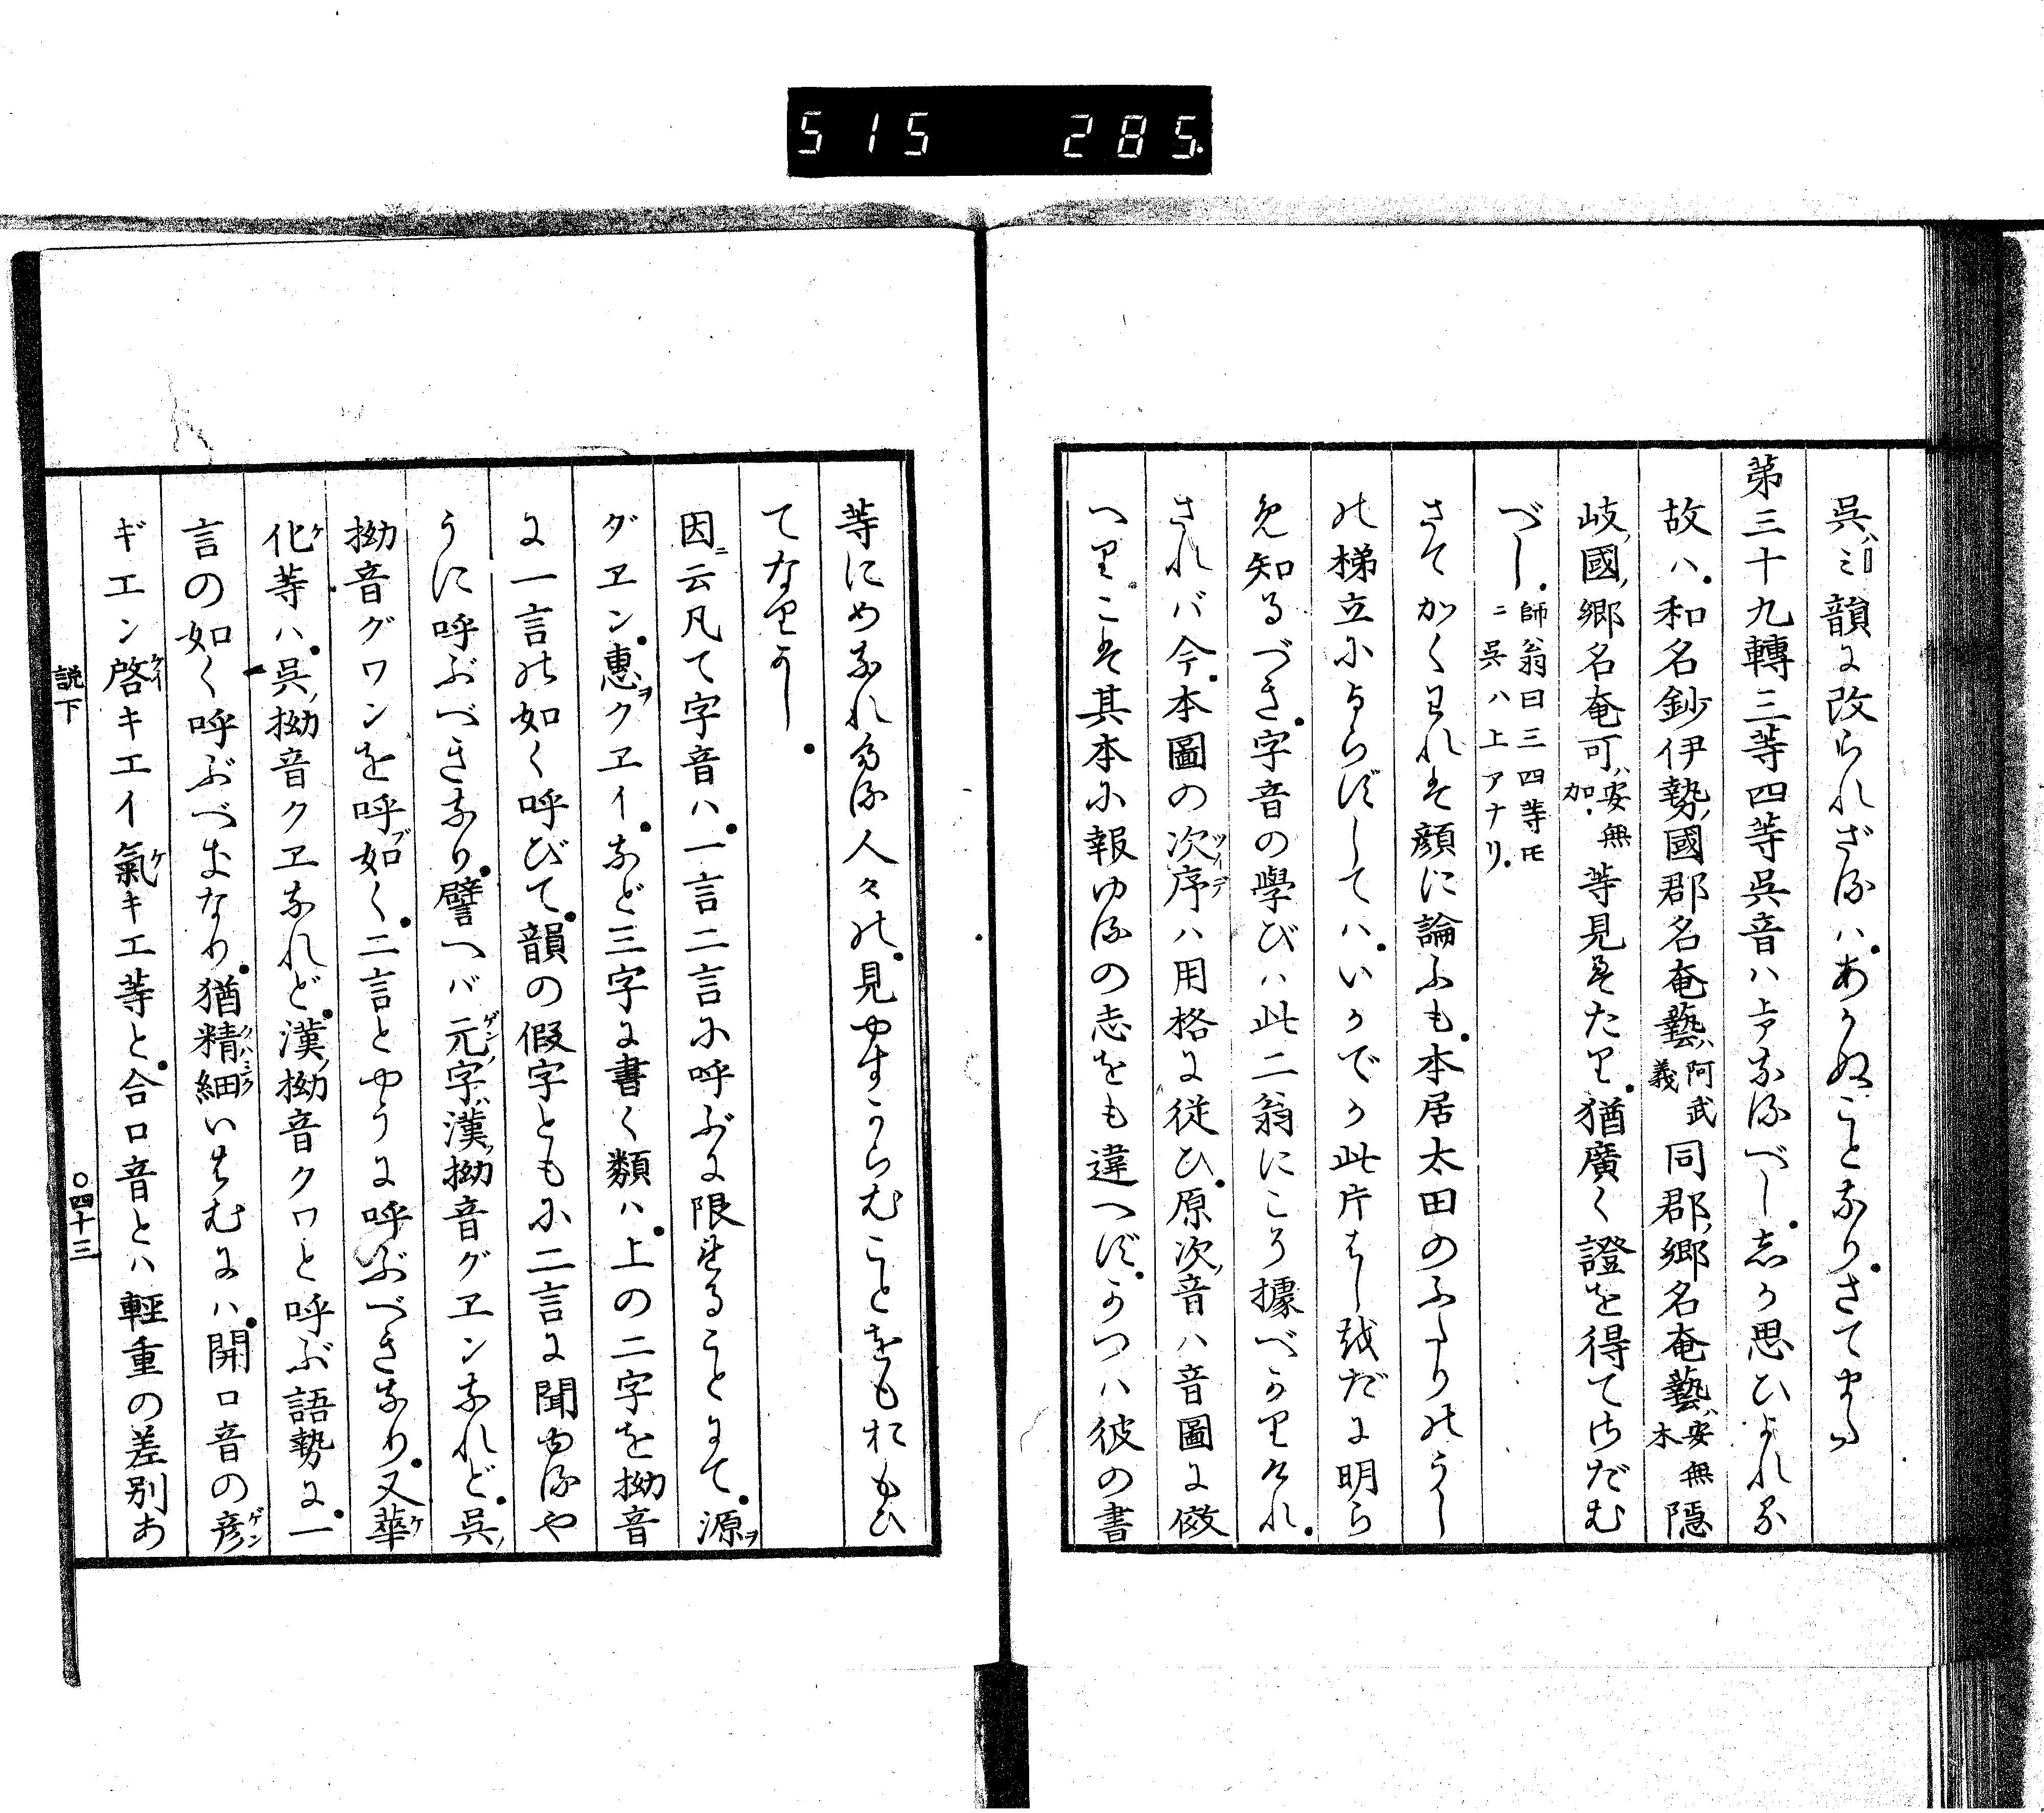 515 285.
呉ハ𪜈韻に改られざるハあかぬことなりさてまた
第三十九轉三等四等呉音ハ上アなるべし志か思ひよれる
故ハ和名鈔伊勢ノ國郡名奄藝ハ阿武義同郡ノ郷名奄藝ハ安無木隠
岐ノ國ノ郷名奄可ハ安無加等見えたり猶廣く證を得てさだむ
べし師翁曰三四等𪜈ニ呉ハ上アナリ
さてかくわれえ顔に論ふも本居太田のふたりのうし
の梯立によらずしてハいかでか此片はし哉だに明ら
め知るべき字音の學びハ此二翁にこそ據べかりけれ
されバ今本圖の次序ツイデハ用格に従ひ原次ノ音ハ音圖に倣
へりこは其本に報ゆるの志をも違へずかつハ彼の書
等にめなれたる人々の見やすからむことをもおもひ
てなりかし
因ニ云凡て字音ハ一言二言に呼ぶに限れることにて源ヲ
グヱン惠ヲクヱイなど三字に書く類ハ上の二字を拗音
に一言の如く呼びて韻の假字ともに二言に聞ゆるや
うに呼ぶべきなり譬へバ元ゲンノ字ハ漢ノ拗音グヱンなれど呉ノ
拗音グワンを呼ブ如く二言とやうに呼ぶべきなり又華ケ
化ケ等ハ呉ノ拗音クヱなれど漢ノ拗音クワと呼ぶ語勢に一
言の如く呼ぶべきなり猶精細クハシクいはむにハ開口音の彦ゲン
ギエン啓ケイキエイ氣ケキエ等と合口音とハ輕重の差別あ
説下
〇四十三